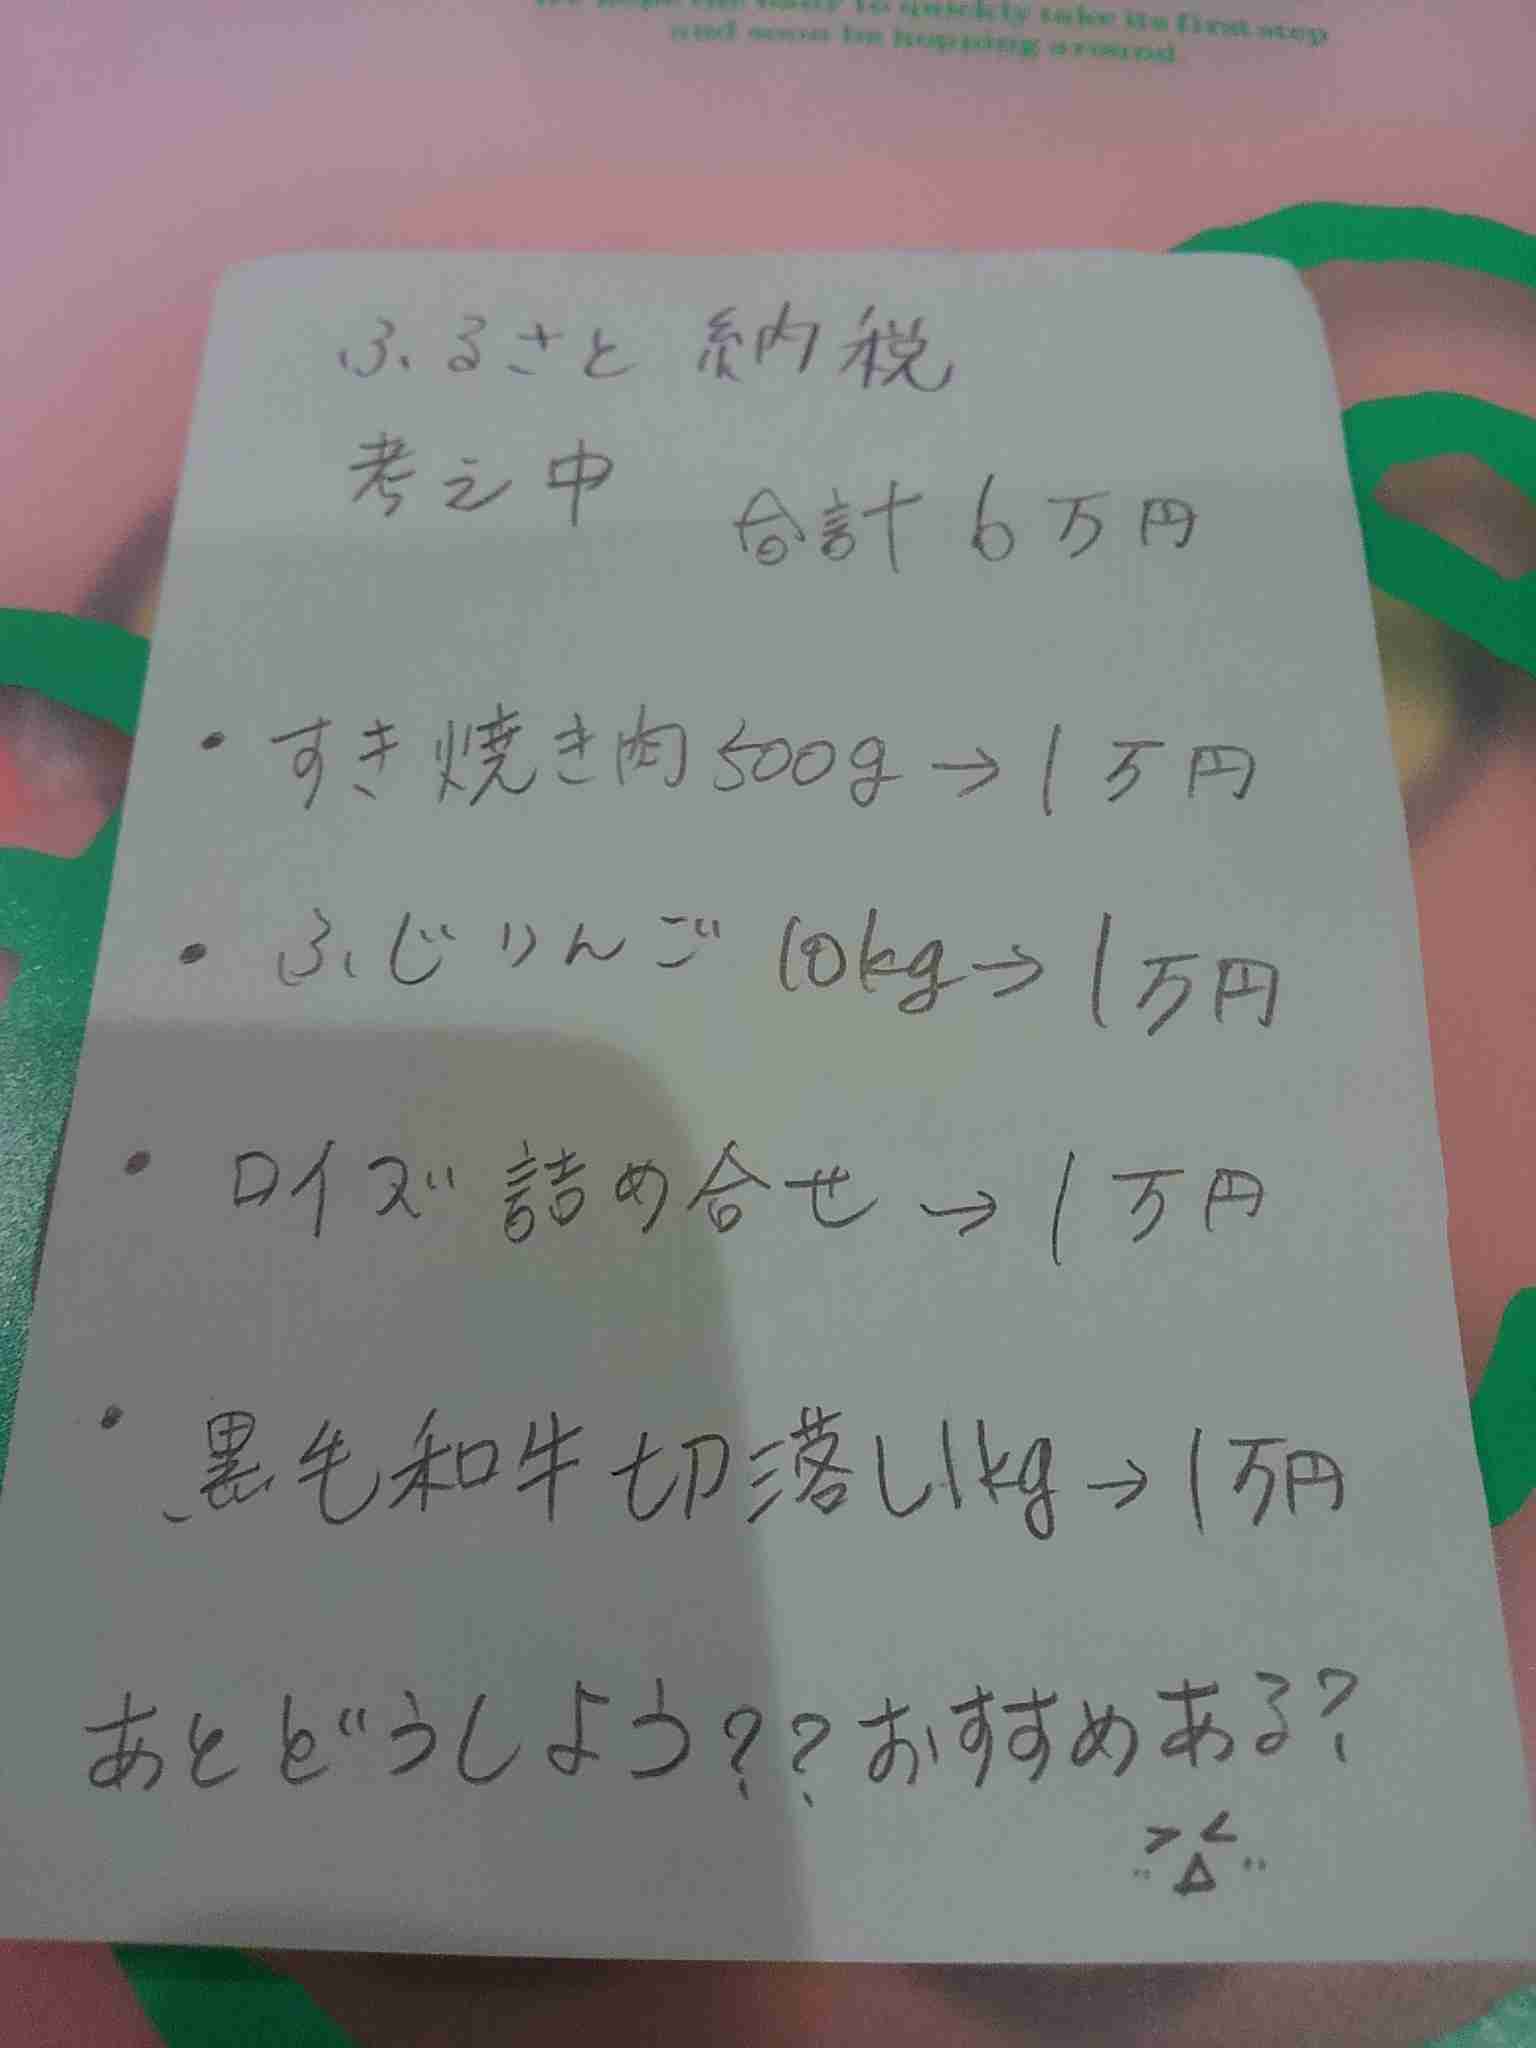 to quickly take its first step
and soon be hopping around
ふるさと 納税
考え中 合計 6万円
・すき焼き肉500g→1万円
・ふじりんご 10kg→1万円
・ロイズ 詰め合せ→1万円
・黒毛和牛切落し1kg→1万円
あとどうしよう??おすすめある?